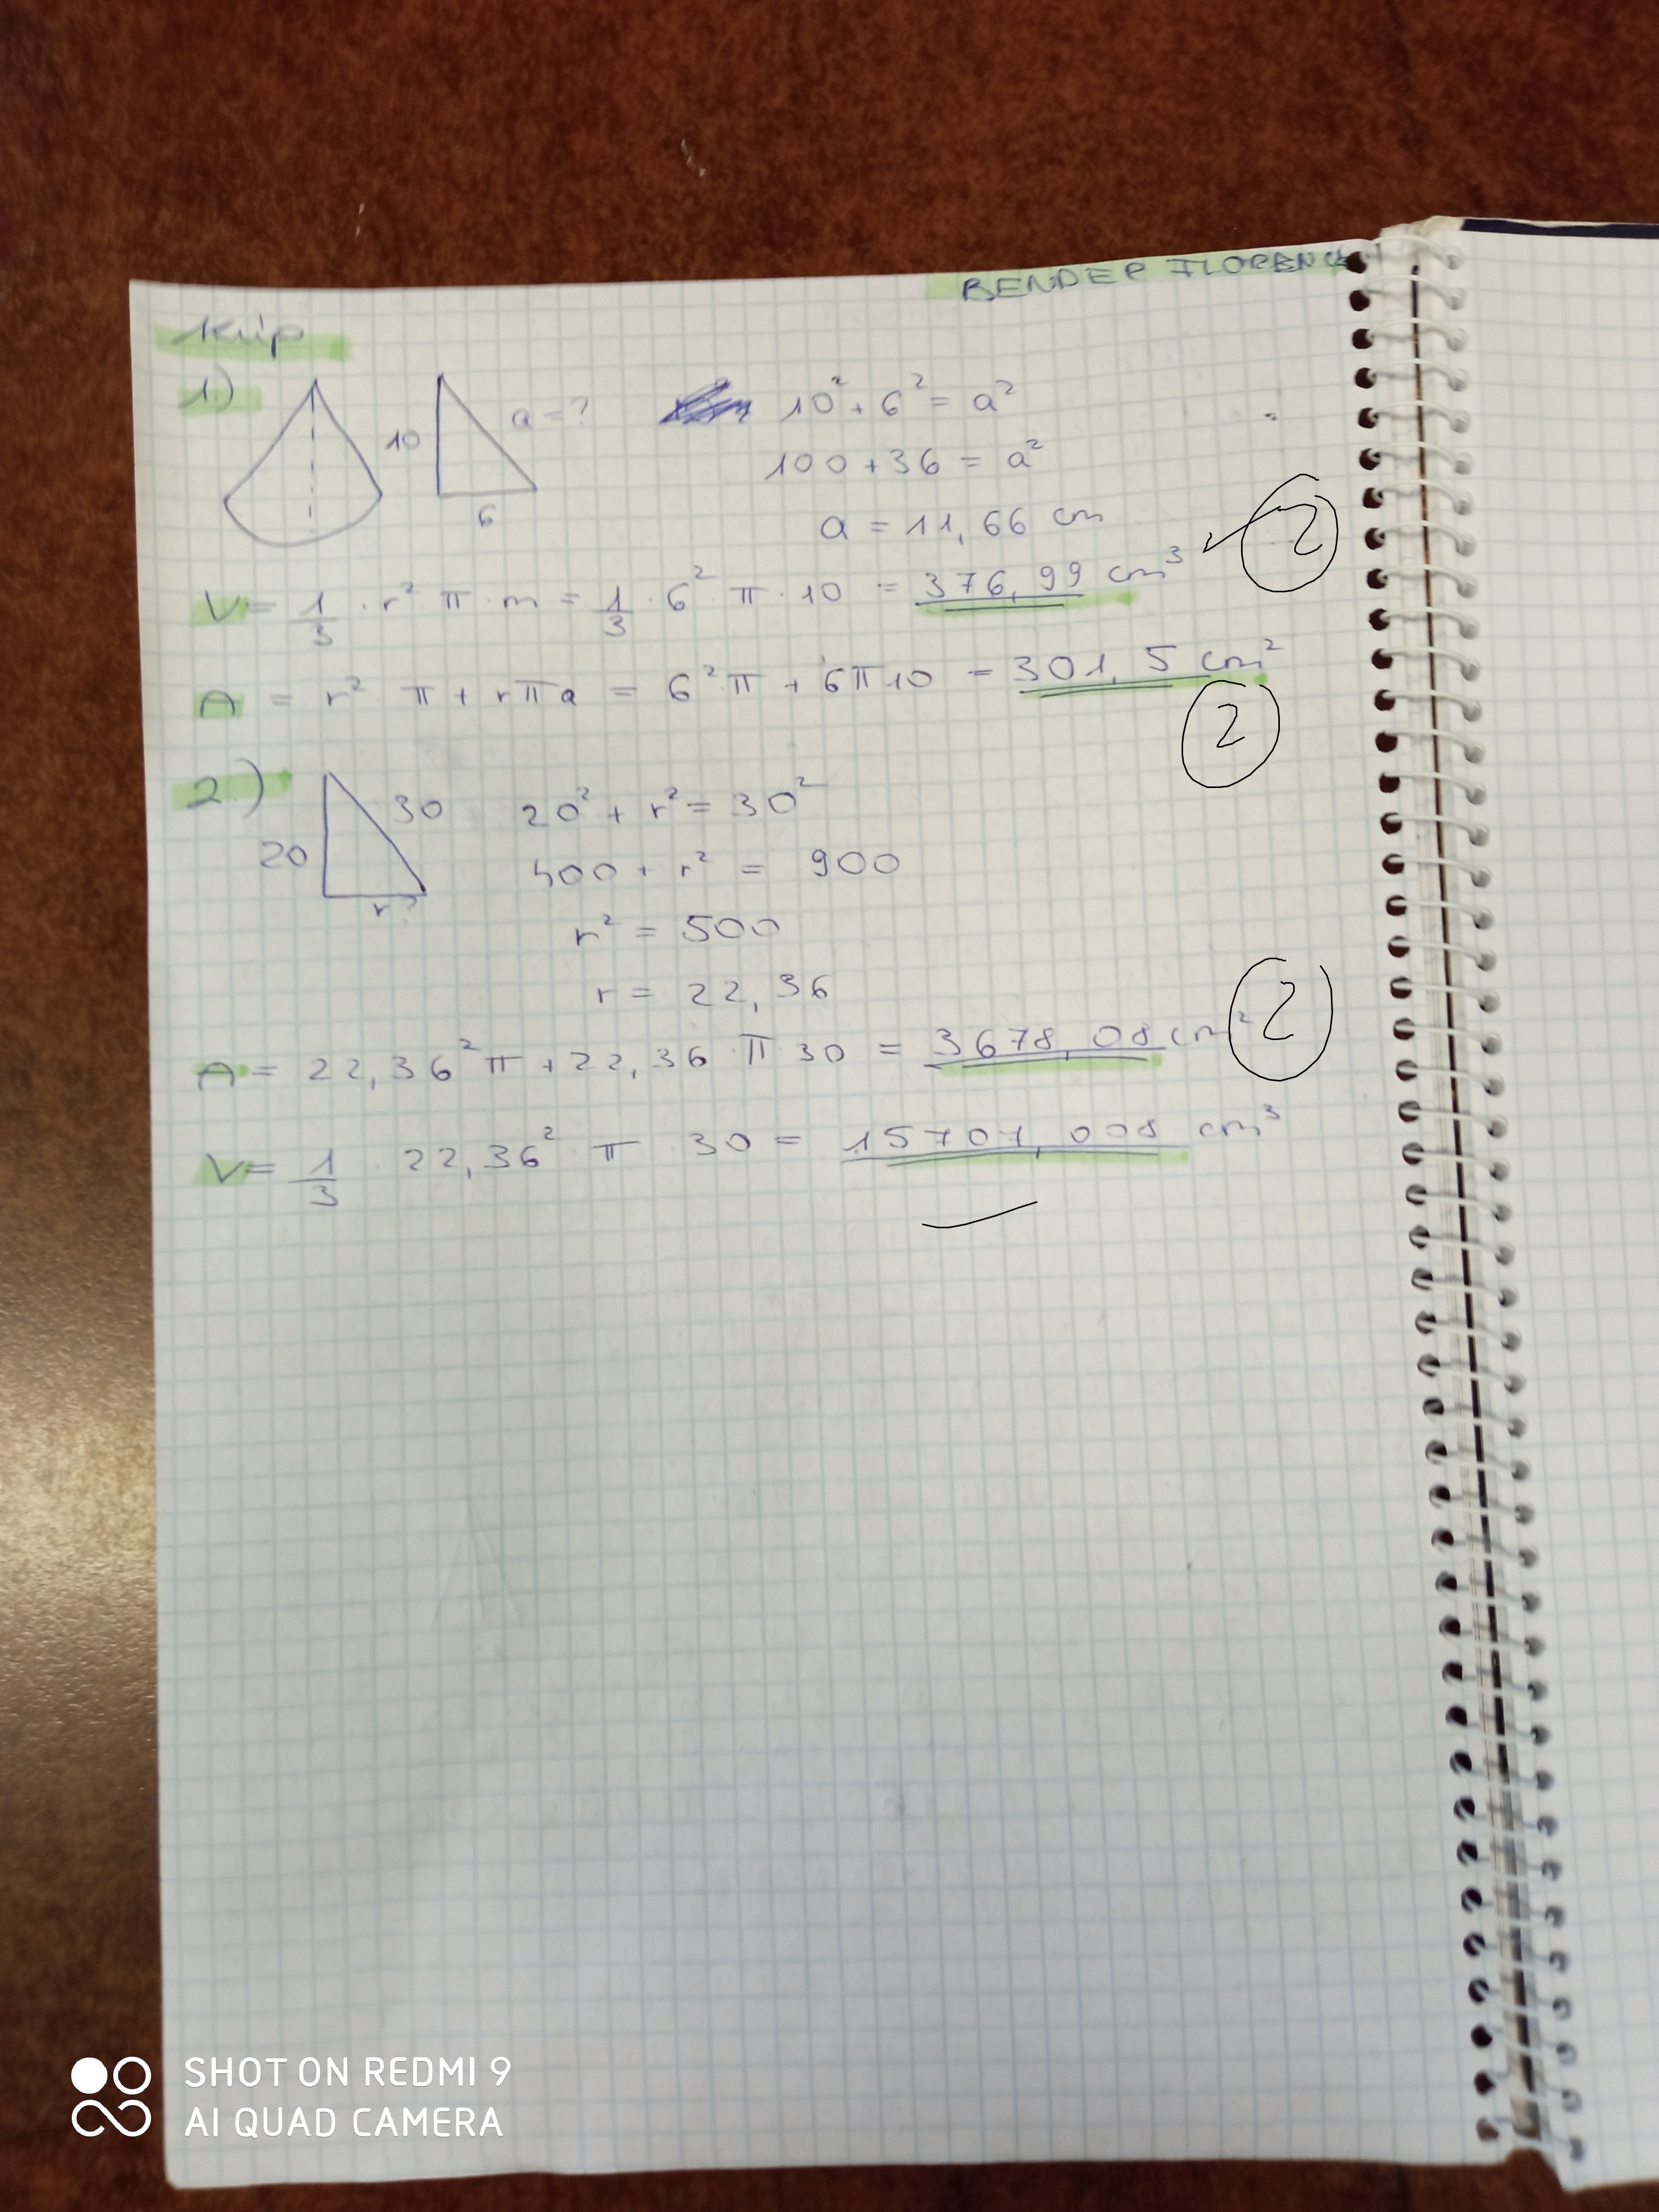 BENDER FLORENCE
Kúp
1.)
10
a = ?
6
10² + 6² = a²
100 + 36 = a²
a = 11,66 cm
2
V = 1/3 · r² π · m = 1/3 · 6² π · 10 = 376,99 cm³
A = r² π + rπa = 6²π + 6π10 = 301,5 cm²
2
2.)
20
30
r?
20² + r² = 30²
400 + r² = 900
r² = 500
r = 22,36
2
A = 22,36² π + 22,36 π 30 = 3678,08 cm²
V = 1/3 · 22,36² · π · 30 = 15707,008 cm³
SHOT ON REDMI 9
AI QUAD CAMERA